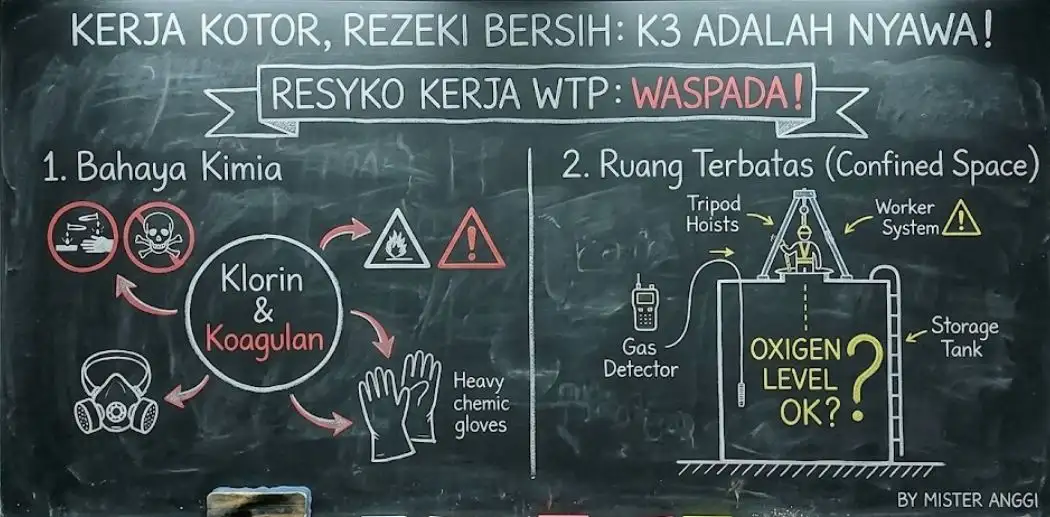 KERJA KOTOR, REZEKI BERSIH: K3 ADALAH NYAWA!
RESYKO KERJA WTP: WASPADA!
1. Bahaya Kimia
Klorin
&
Koagulan
Heavy
chemic
gloves
2. Ruang Terbatas (Confined Space)
Tripod
Hoists
Worker
System
Gas
Detector
Storage
Tank
OXIGEN
LEVEL
OK?
?
BY MISTER ANGGI